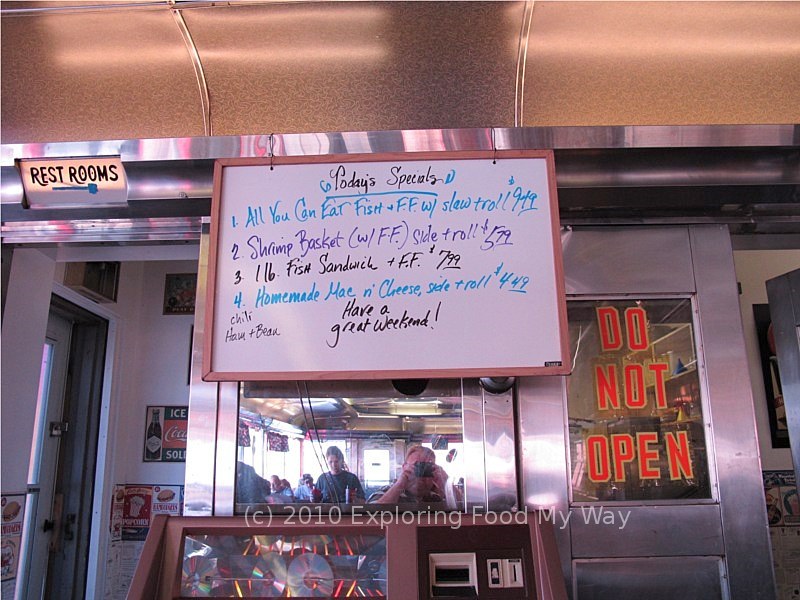 REST ROOMS
Today's Specials
1. All You Can Eat Fish + F.F. w/ slaw + roll $9.49
2. Shrimp Basket (w/ F.F.) side + roll $5.79
3. 1 lb. Fish Sandwich + F.F. $7.99
4. Homemade Mac n' Cheese, side + roll $4.49
chili
Ham + Bean
Have a
great weekend!
DO
NOT
OPEN
ICE
Coca
POPCORN
(c) 2010 Exploring Food My Way